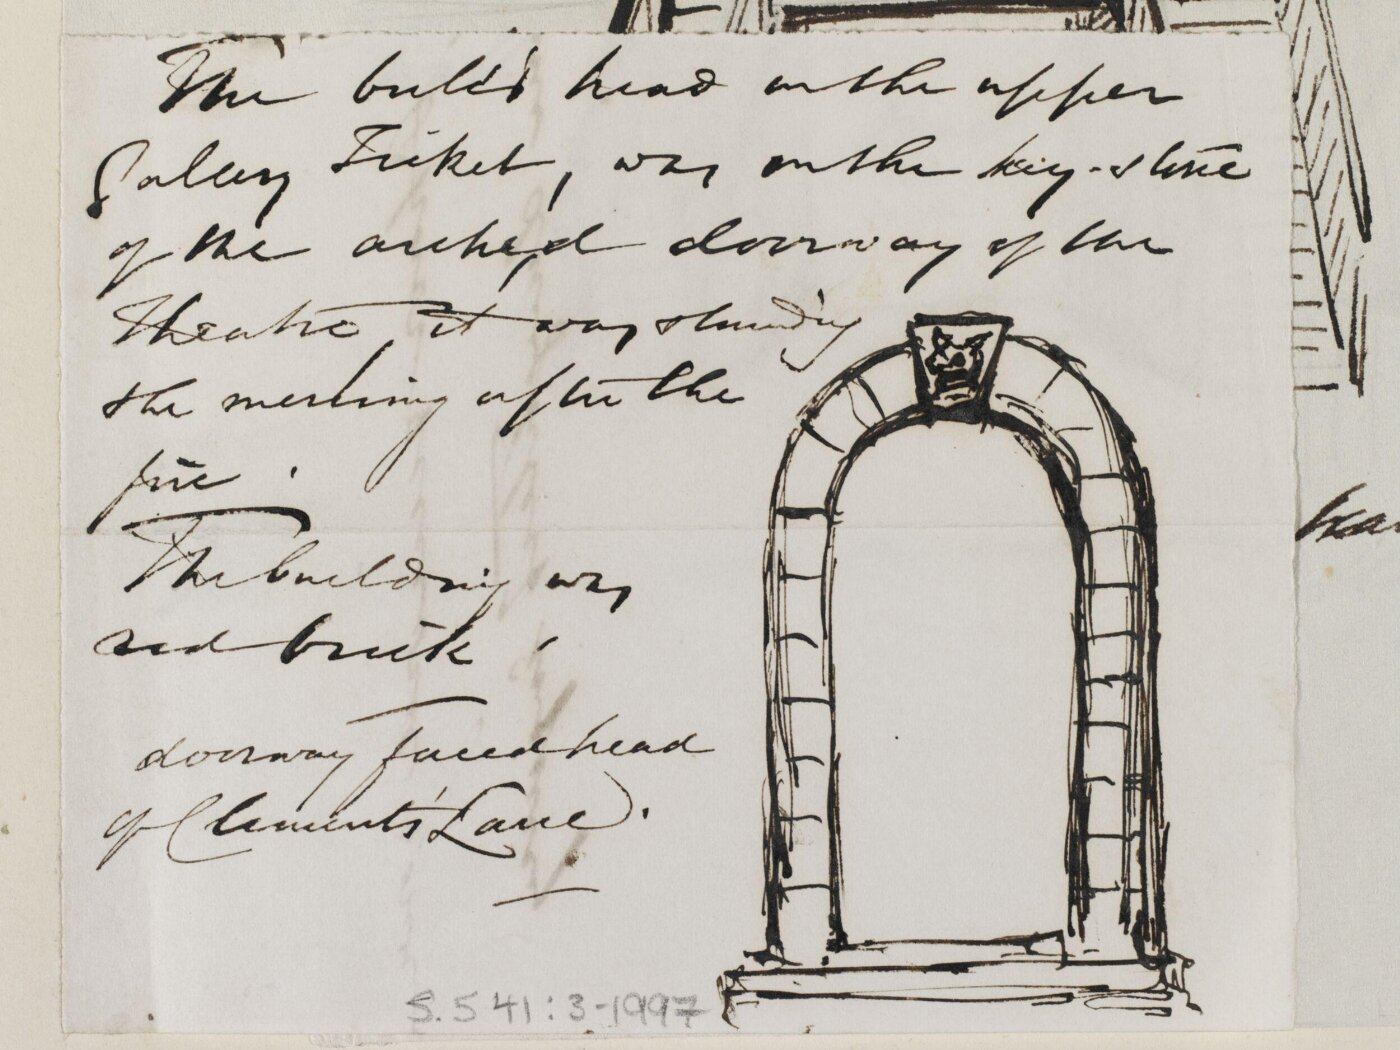 The bull's head on the upper
Gallery Ticket, was on the key-stone
of the arched doorway of the
Theatre, it was standing
the morning after the
fire.
The building was
red brick.
doorway faced head
of Clements Lane.
S.541:3-1997